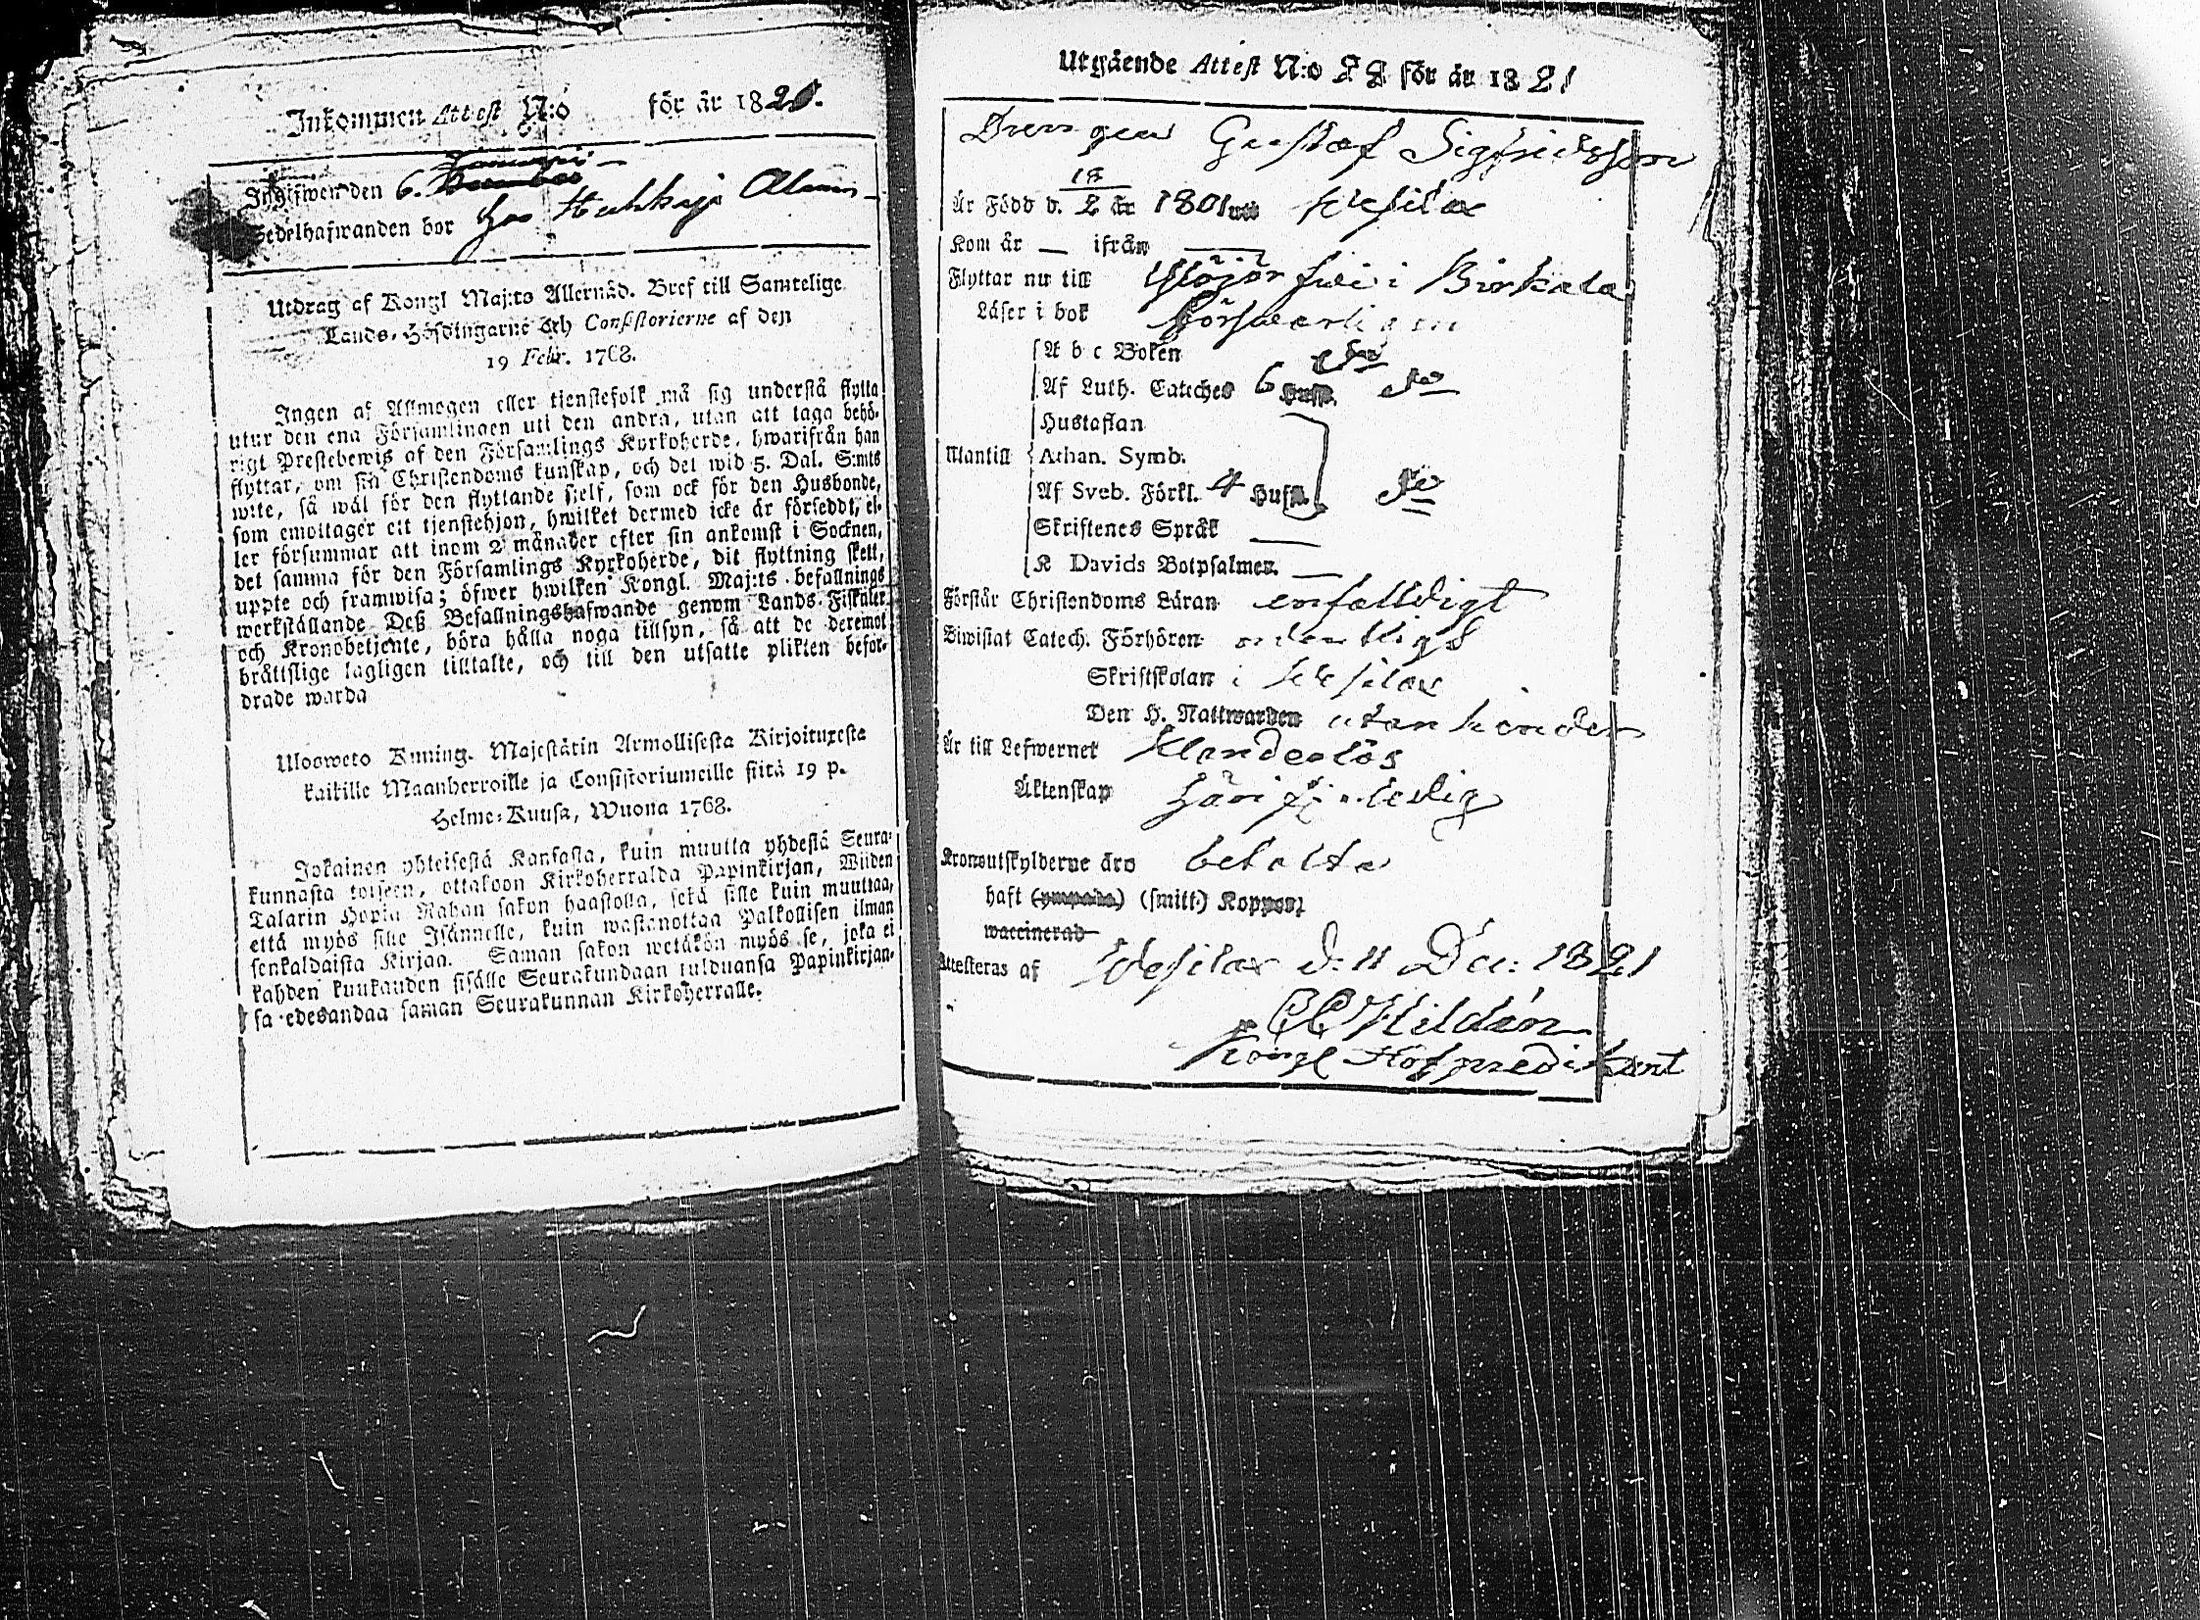 Inkommen Attest N:o för år 1821.
Ingifwen den 6. Januarii
Sedelhafwanden bor hos
Utdrag af Kongl Maj:ts Allernåd. Bref till Samtelige
Lands-Höfdingarne och Consistorierne af den
19 Febr. 1768.
Ingen af Allmogen eller tjenstefolk må sig understå flytta
utur den ena Församlingen uti den andra, utan att taga behö-
rigt Prestebewis af den Församlings Kyrkoherde, hwarifrån han
flyttar, om sin Christendoms kunskap, och det wid 5. Dal. S:mts
wite, så wäl för den flyttande sjelf, som ock för den Husbonde,
som emottager ett tjenstehjon, hwilket dermed icke är förseddt, el-
ler försummar att inom 2 månader efter sin ankomst i Socknen,
det samma för den Församlings Kyrkoherde, dit flyttning skett,
uppte och framwisa; öfwer hwilken Kongl. Maj:ts befallnings
werkställande Deß Befallningshafwande genom Lands-Fiskaler
och Kronobetjente, böra hålla noga tillsyn, så att de deremot
bråttslige lagligen tilltalte, och till den utsatte plikten befor-
drade warda
Ulosweto Kuning. Majestätin Armollisesta Kirjoituxesta
kaikille Maanherroille ja Consistoriumeille siitä 19 p.
Helme-Kuusa, Wuona 1768.
Jokainen yhteisestä Kansasta, kuin muutta yhdestä Seura-
kunnasta toiseen, ottakoon Kirkoherralda Papinkirjan, Wiiden
Talarin Hopia Rahan sakon haastolla, sekä sille kuin muuttaa,
että myös sille Isännelle, kuin wastanottaa Palkollisen ilman
senkaldaista Kirjaa. Saman sakon wetäkön myös se, joka ei
kahden kuukauden sisälle Seurakundaan tulduansa Papinkirjan-
sa edesandaa saman Seurakunnan Kirkoherralle.
Utgående Attest N:o 88 för år 1821
Drengen Gustaf Sigfridsson
Är Född d. 18/2 år 1801 uti Wesilax
Kom år — ifrån —
Flyttar nu till i Birkala
Läser i bok försvarligen
A b c Boken
Af Luth. Cateches 6 Hufst.
Hustaflan
Utantill Athan. Symb.
Af Sveb. Förkl. 4 Hufst.
Skriftenes Språk —
K Davids Botpsalmer. —
Förstår Christendoms Läran enfalldigt
Biwistat Catech. Förhören ordentligt
Skriftskolan i Wesilax
Den H. Nattwarden utan hinder
Är till Lefwernet Klanderlös
Äktenskap
Kronoutskylderne äro betalta
haft (ympade) (smitt.) Koppor,
waccinerad
Attesteras af Wesilax d: 11 Dec: 1821
Hildén
Kongl Hofpredikant